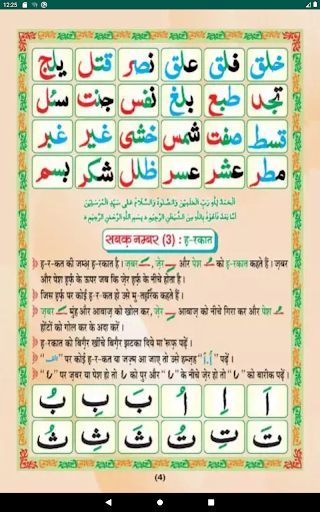 12:25
خلق فلق علق نصر قتل يلج
تجد طبع بلغ نفس جنت سئل
قسط صفت شمس خشى غير غبر
مطر عشر عسر ظلل شكر بسم
اَلْحَمْدُ لِلّٰهِ رَبِّ الْعٰلَمِيْنَ وَالصَّلٰوةُ وَالسَّلَامُ عَلٰى سَيِّدِ الْمُرْسَلِيْنَ
اَمَّا بَعْدُ فَاَعُوْذُ بِاللّٰهِ مِنَ الشَّيْطٰنِ الرَّجِيْمِ ؕ بِسْمِ اللّٰهِ الرَّحْمٰنِ الرَّحِيْمِ ؕ
सबक़ नम्बर (3) : ह-रकात
ह-र-कत की जम्अ़ ह-रकात है। ज़बर, ज़ेर और पेश को ह-रकात कहते हैं। ज़बर
और पेश हर्फ़ के ऊपर जब कि ज़ेर हर्फ़ के नीचे होता है।
जिस हर्फ़ पर कोई ह-र-कत हो उसे मु-तहर्रिक कहते हैं।
ज़बर मुंह और आवाज़ को खोल कर, ज़ेर आवाज़ को नीचे गिरा कर और पेश
होंटों को गोल कर के अदा करें।
ह-रकात को बिग़ैर खींचे बिग़ैर झटका दिये मा'रूफ़ पढ़ें।
"ا" पर कोई ह-र-कत या जज़्म आ जाए तो उसे हम्ज़ह "أ, أ" पढ़ें।
"را" पर ज़बर या पेश हो तो را को पुर और "را" के नीचे ज़ेर हो तो را को बारीक पढ़ें।
اَ اِ اُ بَ بِ بُ
تَ تِ تُ ثَ ثِ ثُ
(4)